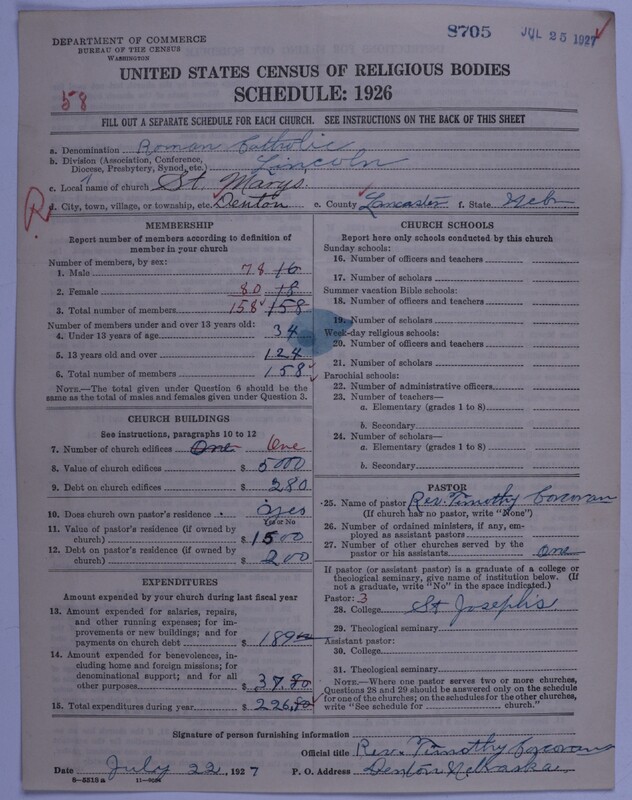 8705 JUL 25 1927
DEPARTMENT OF COMMERCE
BUREAU OF THE CENSUS
WASHINGTON
UNITED STATES CENSUS OF RELIGIOUS BODIES
SCHEDULE: 1926
58
FILL OUT A SEPARATE SCHEDULE FOR EACH CHURCH. SEE INSTRUCTIONS ON THE BACK OF THIS SHEET
a. Denomination Roman Catholic
b. Division (Association, Conference,
Diocese, Presbytery, Synod, etc.) Lincoln
c. Local name of church St. Marys.
R
d. City, town, village, or township, etc. Denton e. County Lancaster f. State Nebr
MEMBERSHIP
Report number of members according to definition of
member in your church
Number of members, by sex:
1. Male 78 16
2. Female 80 18
3. Total number of members 158 158
Number of members under and over 13 years old:
4. Under 13 years of age 34
5. 13 years old and over 124
6. Total number of members 158
NOTE.—The total given under Question 6 should be the
same as the total of males and females given under Question 3.
CHURCH BUILDINGS
See instructions, paragraphs 10 to 12
7. Number of church edifices One One
8. Value of church edifices $ 5000
9. Debt on church edifices $ 280
10. Does church own pastor's residence yes
Yes or No
11. Value of pastor's residence (if owned by
church) $ 1500
12. Debt on pastor's residence (if owned by
church) $ 200
EXPENDITURES
Amount expended by your church during last fiscal year
13. Amount expended for salaries, repairs,
and other running expenses; for im-
provements or new buildings; and for
payments on church debt $ 189
14. Amount expended for benevolences, in-
cluding home and foreign missions; for
denominational support; and for all
other purposes $ 37.80
15. Total expenditures during year $ 226.80
CHURCH SCHOOLS
Report here only schools conducted by this church
Sunday schools:
16. Number of officers and teachers
17. Number of scholars
Summer vacation Bible schools:
18. Number of officers and teachers
19. Number of scholars
Week-day religious schools:
20. Number of officers and teachers
21. Number of scholars
Parochial schools:
22. Number of administrative officers
23. Number of teachers—
a. Elementary (grades 1 to 8)
b. Secondary
24. Number of scholars—
a. Elementary (grades 1 to 8)
b. Secondary
PASTOR
25. Name of pastor Rev. Timothy Corcoran
(If church has no pastor, write "None")
26. Number of ordained ministers, if any, em-
ployed as assistant pastors
27. Number of other churches served by the
pastor or his assistants One
If pastor (or assistant pastor) is a graduate of a college or
theological seminary, give name of institution below. (If
not a graduate, write "No" in the space indicated.)
Pastor: 3
28. College St Josephs
29. Theological seminary
Assistant pastor:
30. College
31. Theological seminary
NOTE.—Where one pastor serves two or more churches,
Questions 28 and 29 should be answered only on the schedule
for one of the churches; on the schedules for the other churches,
write "See schedule for church."
Signature of person furnishing information
Official title Rev. Timothy Corcoran
Date July 22, 1927 P. O. Address Denton Nebraska
8—5518a